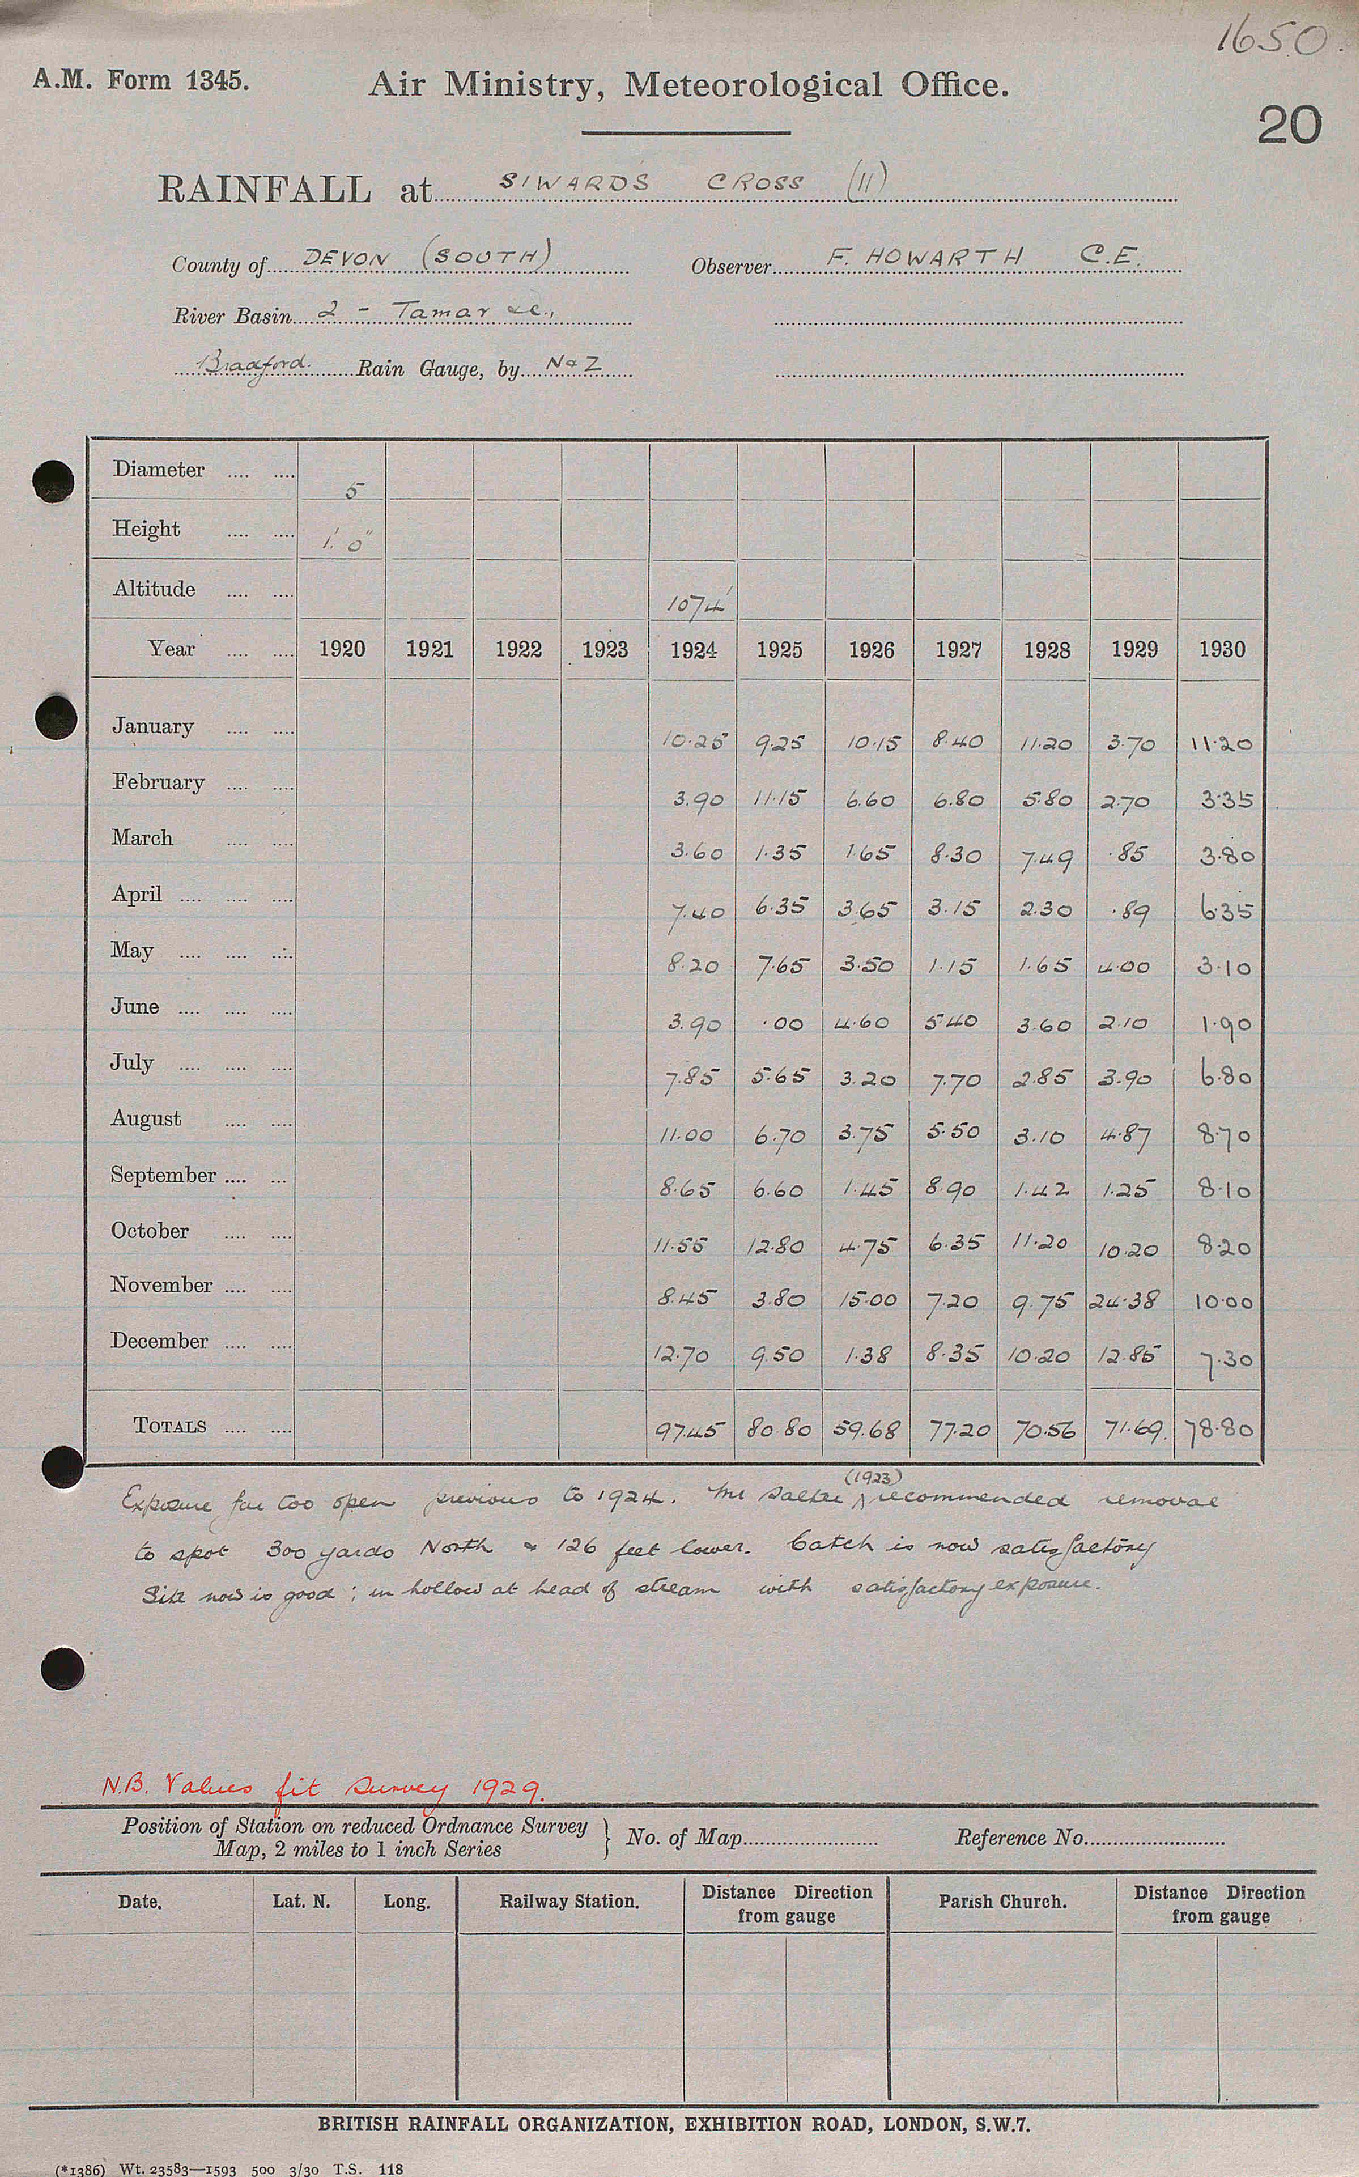 1650.
A.M. Form 1345. Air Ministry, Meteorological Office.
20
RAINFALL at SIWARDS CROSS (11)
County of DEVON (SOUTH) Observer F. HOWARTH C.E.
River Basin 2 - Tamar &c.,
Bradford. Rain Gauge, by N & Z
Diameter 5
Height 1' 0"
Altitude 1074'
Year 1920 1921 1922 1923 1924 1925 1926 1927 1928 1929 1930
January 10.25 9.25 10.15 8.40 11.20 3.70 11.20
February 3.90 11.15 6.60 6.80 5.80 2.70 3.35
March 3.60 1.35 1.65 8.30 7.49 .85 3.80
April 7.40 6.35 3.65 3.15 2.30 .89 6.35
May 8.20 7.65 3.50 1.15 1.65 4.00 3.10
June 3.90 .00 4.60 5.40 3.60 2.10 1.90
July 7.85 5.65 3.20 7.70 2.85 3.90 6.80
August 11.00 6.70 3.75 5.50 3.10 4.87 8.70
September 8.65 6.60 1.45 8.90 1.42 1.25 8.10
October 11.55 12.80 4.75 6.35 11.20 10.20 8.20
November 8.45 3.80 15.00 7.20 9.75 24.38 10.00
December 12.70 9.50 1.38 8.35 10.20 12.85 7.30
TOTALS 97.45 80.80 59.68 77.20 70.56 71.69 78.80
Exposure far too open previous to 1924. Mr Salter (1923) recommended removal
to spot 300 yards North & 126 feet lower. Catch is now satisfactory
Site now is good; in hollow at head of stream with satisfactory exposure.
N.B. Values fit Survey 1929.
Position of Station on reduced Ordnance Survey
Map, 2 miles to 1 inch Series } No. of Map Reference No.
Date. Lat. N. Long. Railway Station. Distance Direction from gauge Parish Church. Distance Direction from gauge
BRITISH RAINFALL ORGANIZATION, EXHIBITION ROAD, LONDON, S.W.7.
(*1386) Wt. 23583—1593 500 3/30 T.S. 118